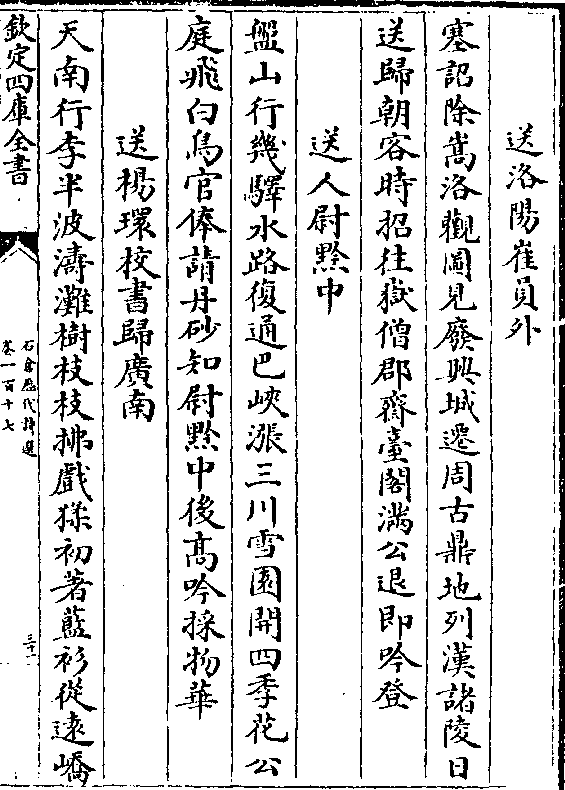 送洛陽崔員外
塞詔除嵩洛觀圖見廢興城遷周古鼎地列漢諸陵日
送歸朝客時招往嶽僧郡齋臺閣滿公退即吟登
送人尉黔中
盤山行幾驛水路復通巴峽漲三川雪園開四季花公
庭飛白鳥官俸請丹砂知尉黔中後高吟採物華
送楊環校書歸廣南
天南行李半波濤灘樹枝枝拂戲猱初著藍衫從遠嶠
欽定四庫全書
石倉歷代詩選
卷一百十七
三十一